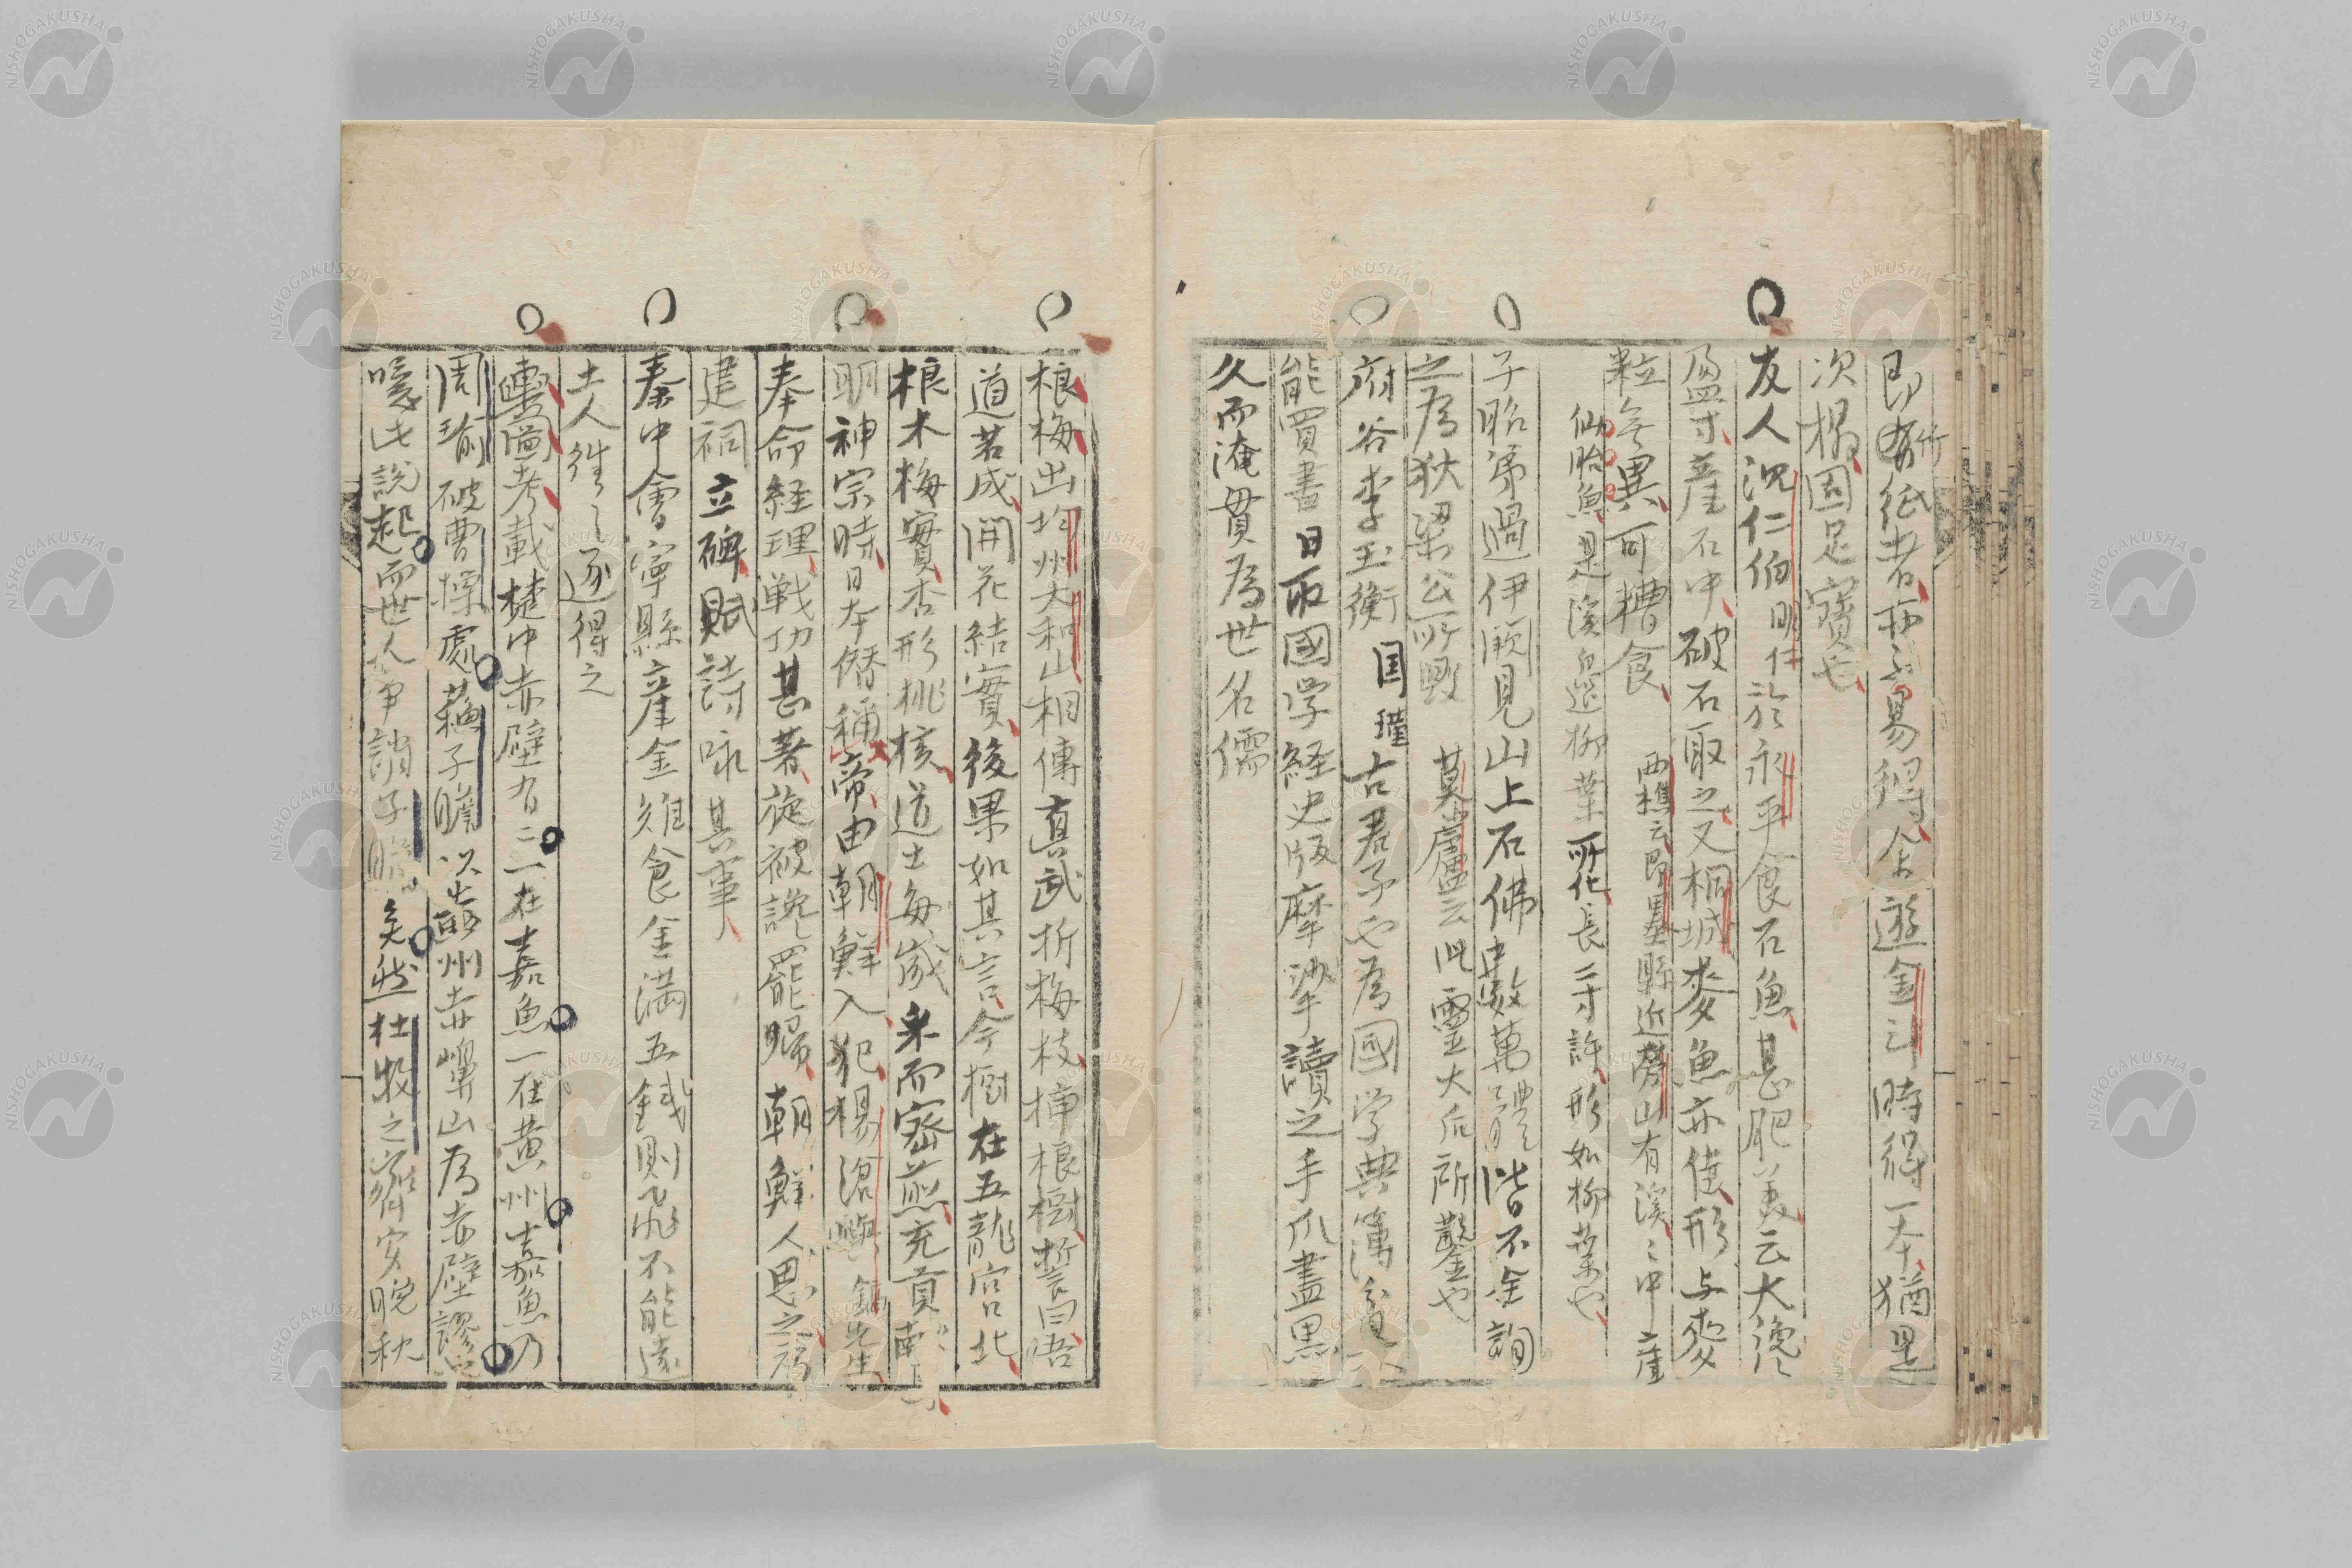 即有紙者所不易得余遊金斗時得一本猶是
次榻固足寶也
友人沉仁伯明仕於永平食石魚甚肥美云大纔
盈寸產石中破石取之又桐城麥魚亦佳形与麥
粒無異可糟食
西樵云即墨縣近勞山有溪〻中產
仙胎魚是溪邊柳葉所化長三寸許形如柳葉也
子昭弟過伊闕見山上石佛數萬體皆不全詢
之為狄梁公所毀
莫廬云此靈大后所鑿也
府谷李玉衡国瑾古君子也為國学典簿
能買書日取國学経史版摩挲讀之手爪盡黒
久而淹貫為世名儒
榔梅出均州太和山相傳真武折梅枝插榔樹誓曰吾
道若成開花結實後果如其言今樹在五龍宮北
榔木梅實杏形桃核道士每歲采而蜜煎充貢
明神宗時日本僭稱帝由朝鮮入犯楊滄嶼鎬先生
奉命経理戦功甚著旋被讒罷歸朝鮮人思之為
建祠立碑賦詩咏其事
秦中會寧縣產金雉食金満五銭則飛不能遠
土人往〻逐得之
輿圖考載楚中赤壁有二一在嘉魚一在黄州嘉魚乃
周瑜破曹操處蘓子瞻以黄州赤嶼山為赤壁謬
噫此說起而世人争誚子瞻矣然杜牧之齊安晚秋